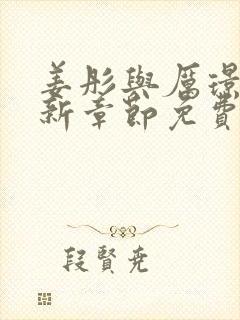 姜彤與厲璟
新章節免費
段賢堯